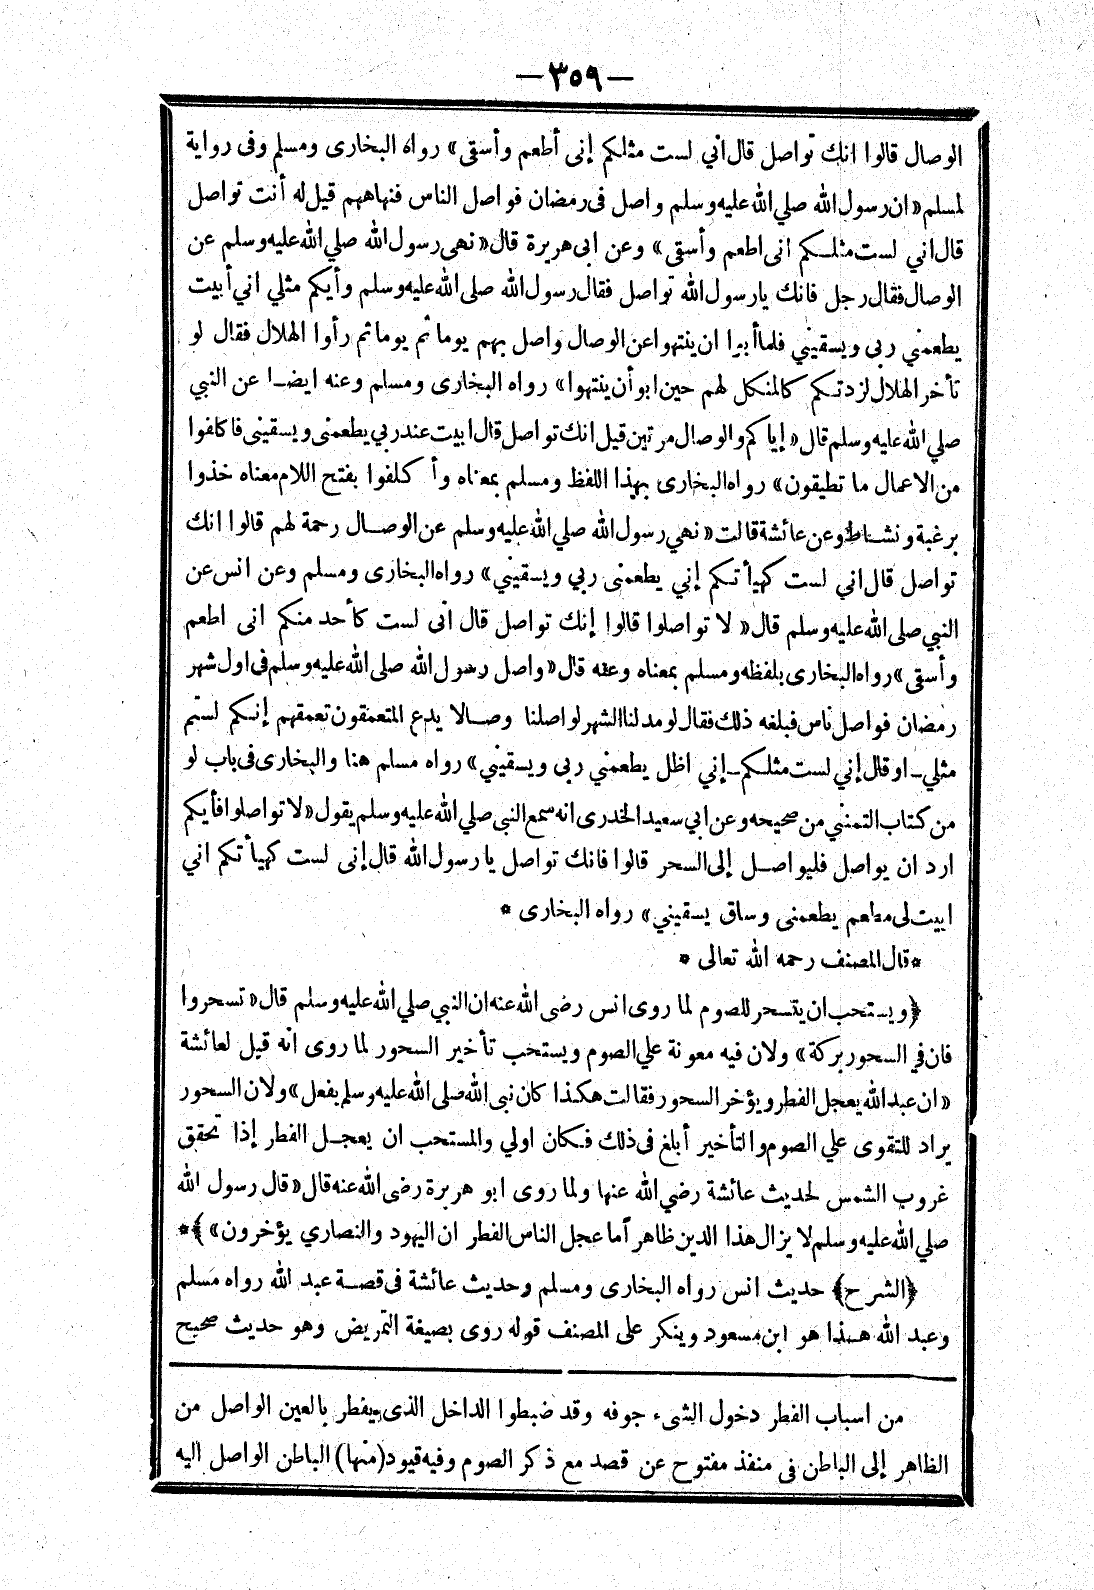 — ٣٥٩ —
الوصال قالوا انك تواصل قال اني لست مثلكم إنى أطعم وأسقى» رواه البخارى ومسلم وفى رواية
لمسلم «ان رسول الله صلي الله عليه وسلم واصل فى رمضان فواصل الناس فنهاهم قيل له أنت تواصل
قال اني لست مثلـكم انى اطعم وأسقى» وعن ابى هريرة قال «نهى رسول الله صلي الله عليه وسلم عن
الوصال فقال رجل فانك يارسول الله تواصل فقال رسول الله صلى الله عليه وسلم وأيكم مثلي اني أبيت
يطعمني ربى ويسقيني فلما أبوا ان ينتهوا عن الوصال واصل بهم يوما ثم يوما ثم رأوا الهلال فقال لو
تأخر الهلال لزدتـكم كالمنكل لهم حين ابو أن ينتهوا» رواه البخارى ومسلم وعنه ايضـا عن النبي
صلي الله عليه وسلم قال «إياكم والوصال مرتين قيل انك تواصل قال ابيت عند ربي يطعمنى ويسقينى فاكلفوا
من الاعمال ما تطيقون» رواه البخارى بهذا اللفظ ومسلم بمعناه وأ كلفوا بفتح اللام معناه خذوا
برغبة ونشـاط وعن عائشة قالت «نهي رسول الله صلي الله عليه وسلم عن الوصـال رحمة لهم قالوا انك
تواصل قال اني لست كهيأتـكم إني يطعمنى ربي ويسقيني» رواه البخارى ومسلم وعن انس عن
النبي صلى الله عليه وسلم قال «لا تواصلوا قالوا إنك تواصل قال انى لست كأحد منكم انى اطعم
وأسقى» رواه البخارى بلفظه ومسلم بمعناه وعنه قال «واصل رسول الله صلى الله عليه وسلم فى اول شهر
رمضان فواصل ناس فبلغه ذلك فقال لو مد لنا الشهر لواصلنا وصـالا يدع المتعمقون تعمقهم إنـكم لستم
مثلي ـ او قال إني لست مثلـكم ـ إني اظل يطعمني ربى ويسقيني» رواه مسلم هنا والبخارى فى باب لو
من كتاب التمنى من صحيحه وعن ابي سعيد الخدرى انه سمع النبى صلي الله عليه وسلم يقول «لا تواصلوا فأيكم
ارد ان يواصل فليواصـل إلى السحر قالوا فانك تواصل يارسول الله قال إنى لست كهيأتكم اني
ابيت لى مطعم يطعمنى وساق يسقيني» رواه البخارى *
* قال المصنف رحمه الله تعالى *
﴿ويستحب ان يتسحر للصوم لما روى انس رضى الله عنه ان النبي صلي الله عليه وسلم قال «تسحروا
فان في السحور بركة» ولان فيه معونة علي الصوم ويستحب تأخير السحور لما روى انه قيل لعائشة
«ان عبد الله يعجل الفطر ويؤخر السحور فقالت هكذا كان نبى الله صلى الله عليه وسلم يفعل» ولان السحور
يراد للتقوى علي الصوم والتأخير أبلغ فى ذلك فـكان اولي والمستحب ان يعجـل الفطر إذا تحقق
غروب الشمس لحديث عائشة رضي الله عنها ولما روى ابو هريرة رضى الله عنه قال «قال رسول الله
صلي الله عليه وسلم لا يزال هذا الدين ظاهرا ما عجل الناس الفطر ان اليهود والنصاري يؤخرون»﴾ *
﴿الشرح﴾ حديث انس رواه البخارى ومسلم وحديث عائشة فى قصـة عبد الله رواه مسلم
وعبد الله هـذا هو ابن مسعود وينكر على المصنف قوله روى بصيغة التمريض وهو حديث صحيح
من اسباب الفطر دخول الشىء جوفه وقد ضبطوا الداخل الذى يفطر بالعين الواصل من
الظاهر إلى الباطن فى منفذ مفتوح عن قصد مع ذكر الصوم وفيه قيود (منها) الباطن الواصل اليه